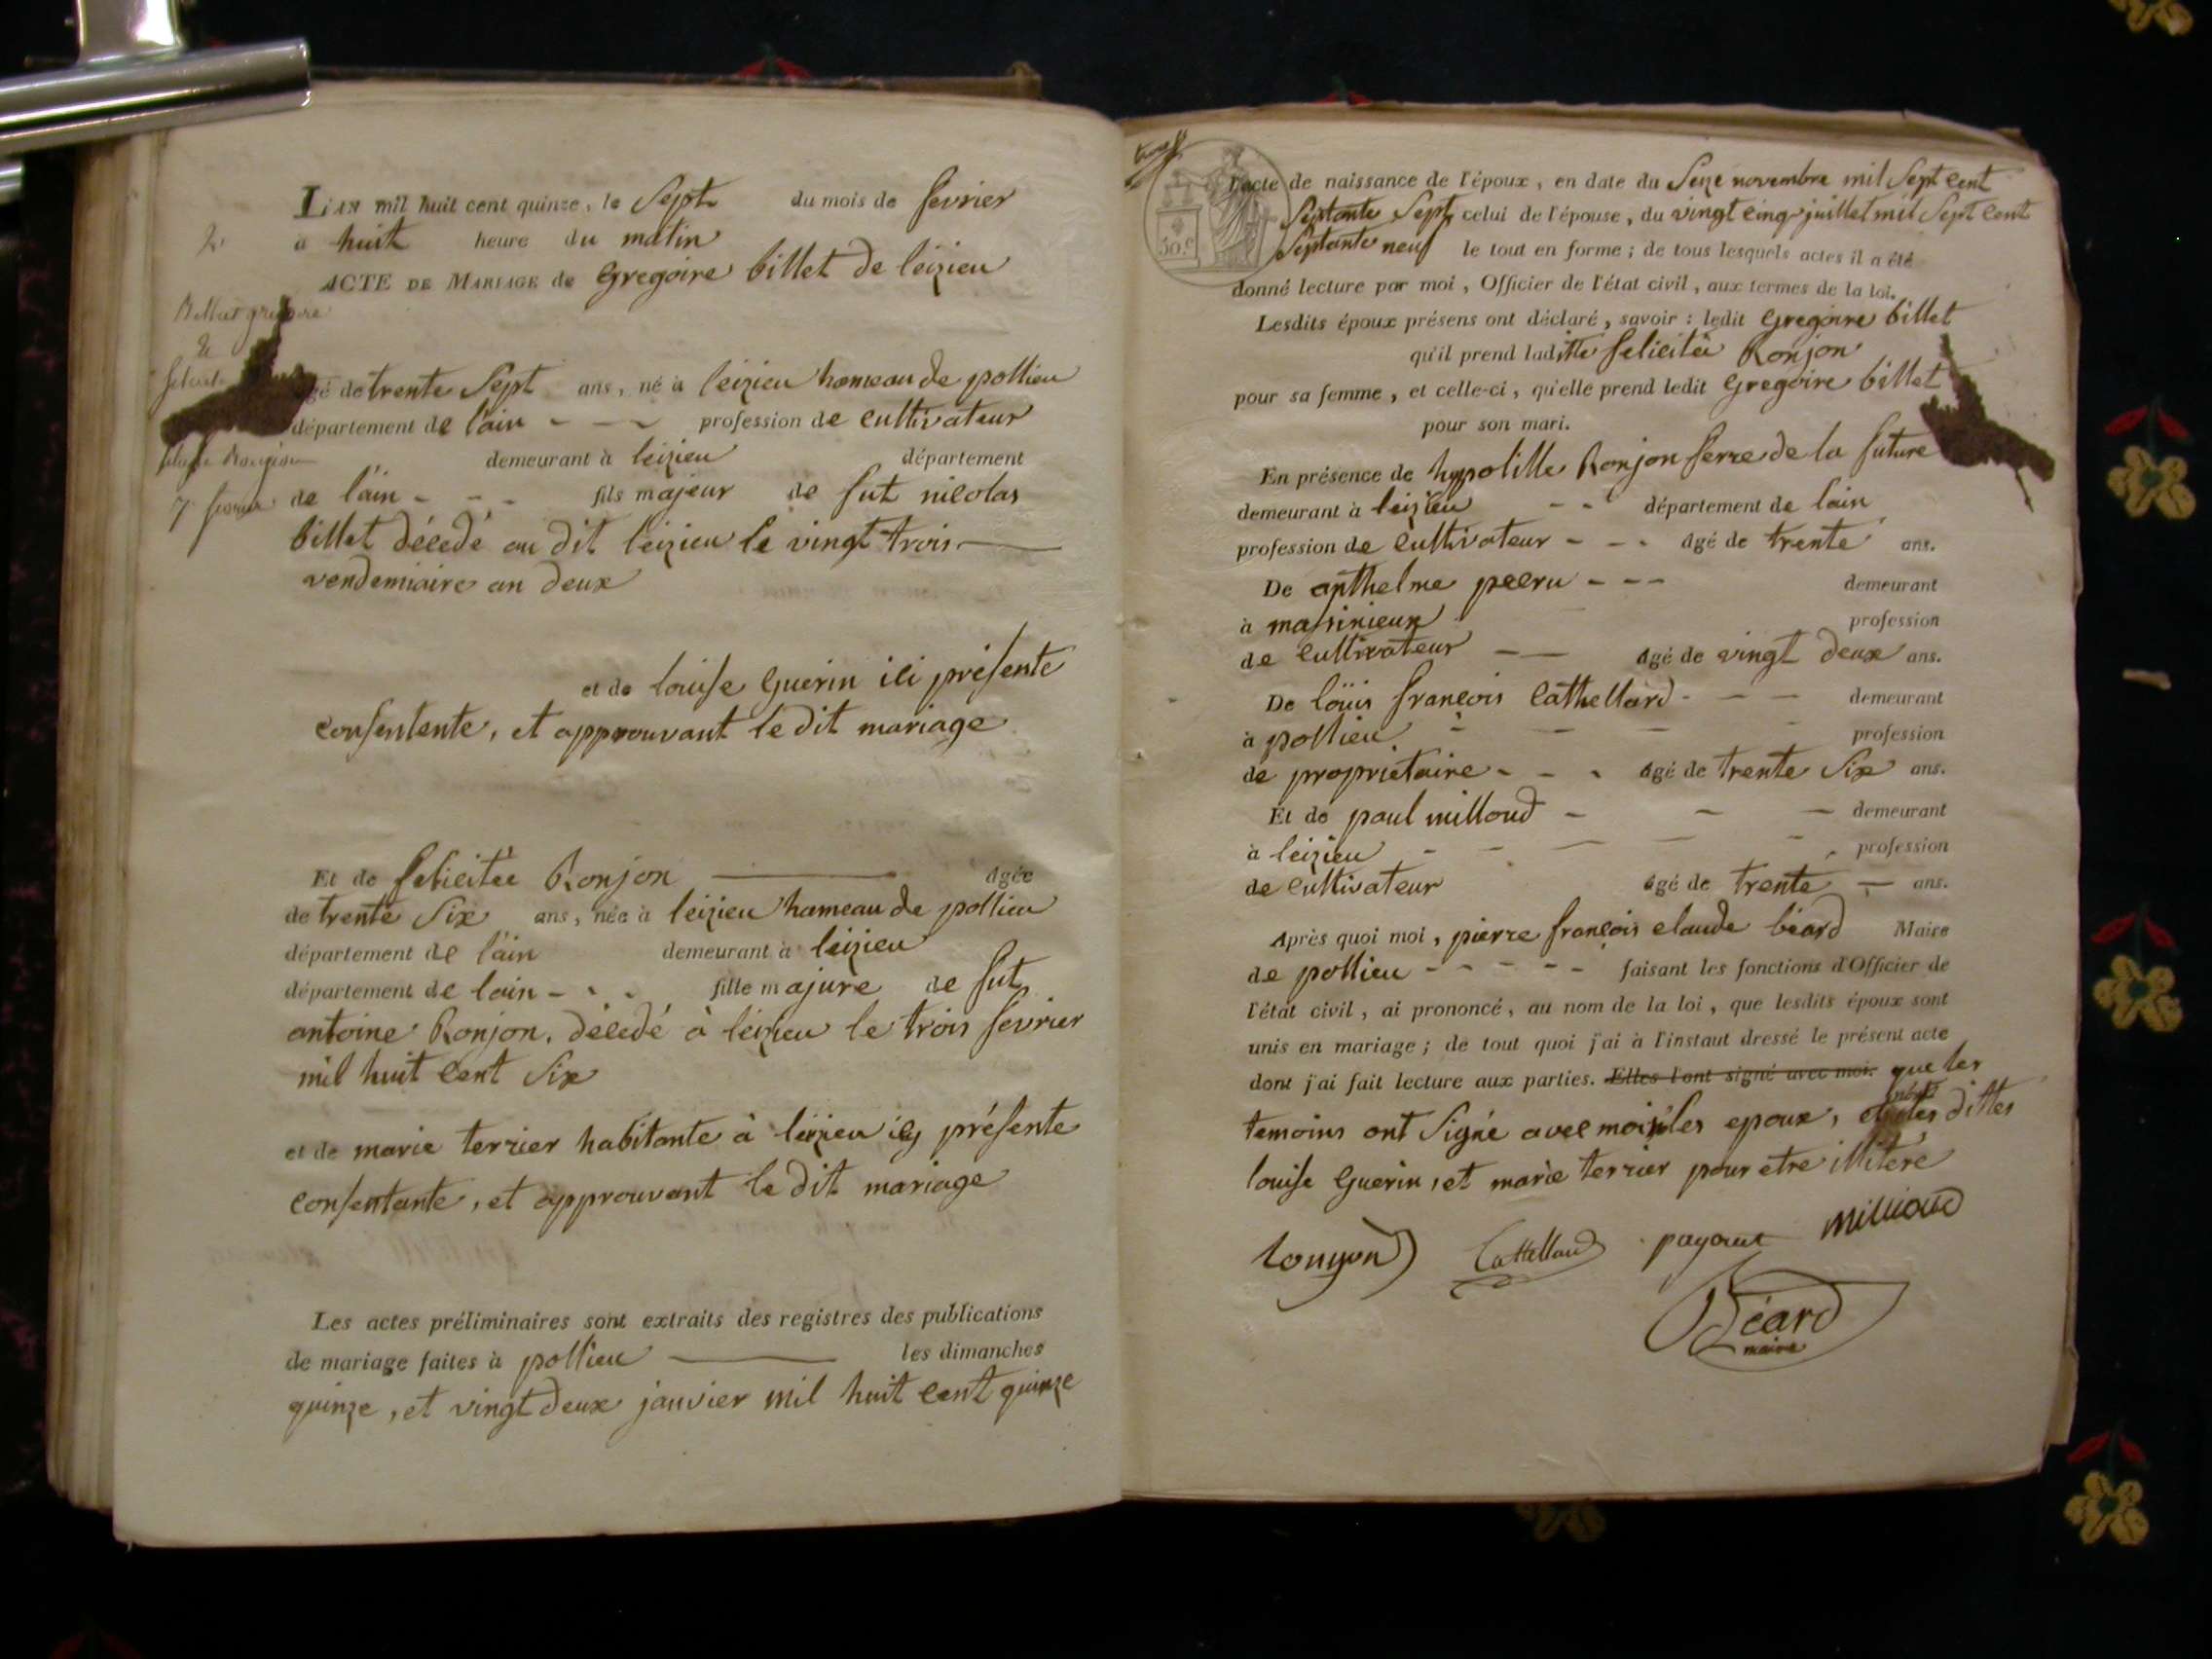 L'an mil huit cent quinze, le Sept du mois de fevrier
2
à huit heure du matin
ACTE DE MARIAGE de Gregoire billet de leizieu
Billiet gregoire
&
agé de trente Sept ans, né à leizieu hameau de pollieu
département de l'ain - - ~ profession de cultivateur
demeurant à leizieu département
7 fevrier
de l'ain - - - fils majeur de fut nicolas
billet décedé au dit leizieu le vingt trois
vendemiaire an deux
et de louise Guerin ici présente
consentente, et approuvant le dit mariage
Et de felicitée Ronjon agée
de trente Six ans, née à leizieu hameau de pollieu
département de l'ain demeurant à leizieu
département de lain - - - fille majure de fut
antoine Ronjon, décedé à leizieu le trois fevrier
mil huit cent Six
et de marie terrier habitante à leizieu icy présente
consentante, et approuvant le dit mariage
Les actes préliminaires sont extraits des registres des publications
de mariage faites à pollieu les dimanches
quinze, et vingt deux janvier mil huit cent quinze
l'acte de naissance de l'époux, en date du Seize novembre mil Sept cent
Septante Sept, celui de l'épouse, du vingt cinq juillet mil Sept cent
50.c
Septante neuf le tout en forme ; de tous lesquels actes il a été
donné lecture par moi, Officier de l'état civil, aux termes de la loi.
Lesdits époux présens ont déclaré, savoir : ledit Gregoire billet
qu'il prend laditte felicitée Ronjon
pour sa femme, et celle-ci, qu'elle prend ledit Gregoire billet
pour son mari.
En présence de hypolille Ronjon ferre de la future
demeurant à leizieu - - département de lain
profession de cultivateur - - - agé de trente ans.
De anthelme peeru - - - demeurant
à massinieux profession
de cultivateur — — agé de vingt deux ans.
De loüis françois Cathellard - - - demeurant
à pollieu - - - - profession
de proprietaire - - - agé de trente Six ans.
Et de paul milloud - - - demeurant
à leizieu - - - - - profession
de cultivateur agé de trente — ans.
Après quoi moi, pierre françois claude béard Maire
de pollieu - - - - - faisant les fonctions d'Officier de
l'état civil, ai prononcé, au nom de la loi, que lesdits époux sont
unis en mariage ; de tout quoi j'ai à l'instaut dressé le présent acte
dont j'ai fait lecture aux parties. Elles l'ont signé avec moi. que les
temoins ont Signé avec moi les epoux, dittes
louise Guerin, et marie terrier pour etre illiteré
Cattellard millioud
Béard
maire